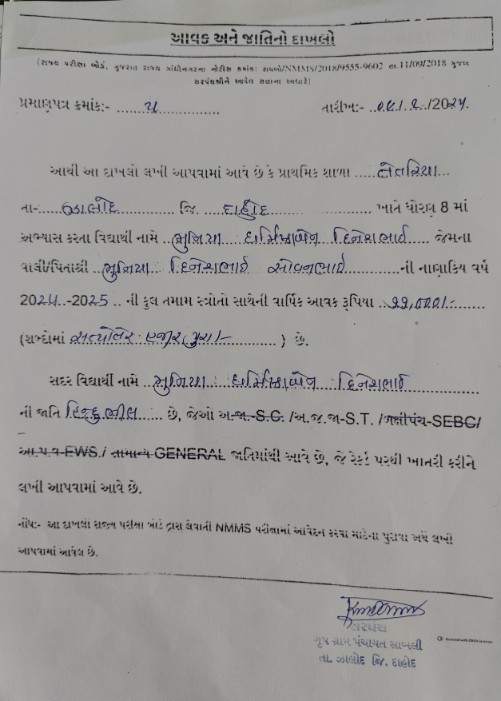 આવક અને જાતિનો દાખલો
(રાજ્ય પરીક્ષા બોર્ડ, ગુજરાત રાજ્ય ગાંધીનગરના નોટીસ ક્રમાંક: રાપબો/NMMS/2018/9555-9602 તા.11/09/2018 મુજબ
સરપંચશ્રીને આવેલ સત્તાના આધારે)
પ્રમાણપત્ર ક્રમાંક:- તારીખ:- /2024
આથી આ દાખલો લખી આપવામાં આવે છે કે પ્રાથમિક શાળા
તા- ઝાલોદ જિ. દાહોદ ખાતે ધોરણ 8 માં
અભ્યાસ કરતા વિદ્યાર્થી નામે ભુનિયા ધર્મિષ્ઠાબેન દિનેશભાઈ જેમના
વાલી/પિતાશ્રી ભુનિયા દિનેશભાઈ સોવનભાઈ ની નાણાકિય વર્ષ
2024-2025 ની કુલ તમામ સ્ત્રોતો સાથેની વાર્ષિક આવક રૂપિયા
(શબ્દોમાં હજાર પુરા/- ) છે.
સદર વિદ્યાર્થી નામે ભુનિયા ધર્મિષ્ઠાબેન દિનેશભાઈ
ની જાતિ હિન્દુ ભીલ છે, જેઓ અ.જા.-S.C. /અ.જ.જા-S.T. /બક્ષીપંચ-SEBC/
આ.પ.વ-EWS / સામાન્ય GENERAL જાતિમાંથી આવે છે, જે રેકર્ડ પરથી ખાતરી કરીને
લખી આપવામાં આવે છે.
નોંધ:- આ દાખલો રાજ્ય પરીક્ષા બોર્ડ દ્વારા લેવાતી NMMS પરીક્ષામાં આવેદન કરવા માટેના પુરાવા અર્થે લખી
આપવામાં આવેલ છે.
સરપંચ
ગ્રુપ ગ્રામ પંચાયત
તા. ઝાલોદ જિ. દાહોદ